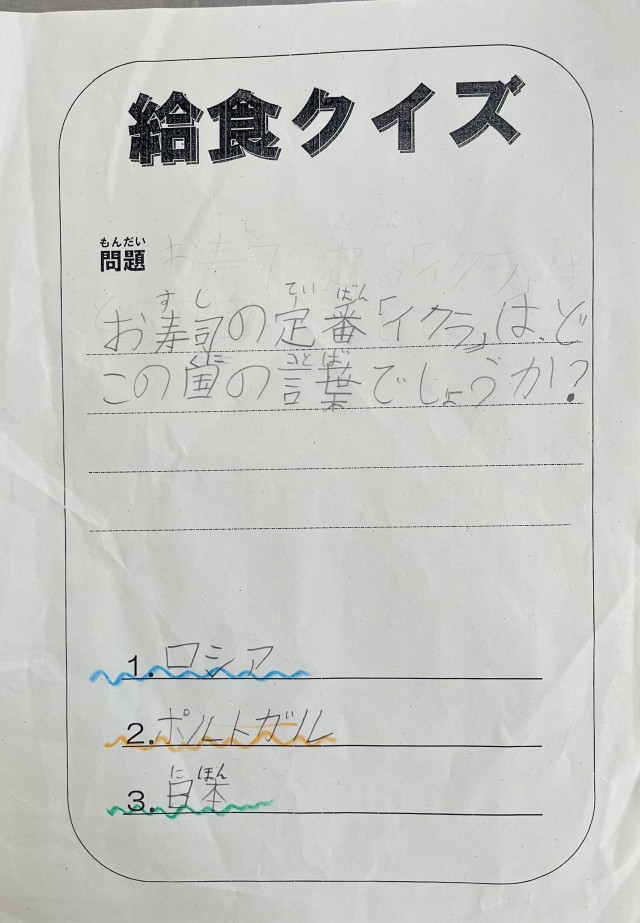 給食クイズ
もんだい
問題
すし ていばん
お寿司の定番「イクラ」は、ど
くに ことば
この国の言葉でしょうか?
1. ロシア
2. ポルトガル
にほん
3.日本